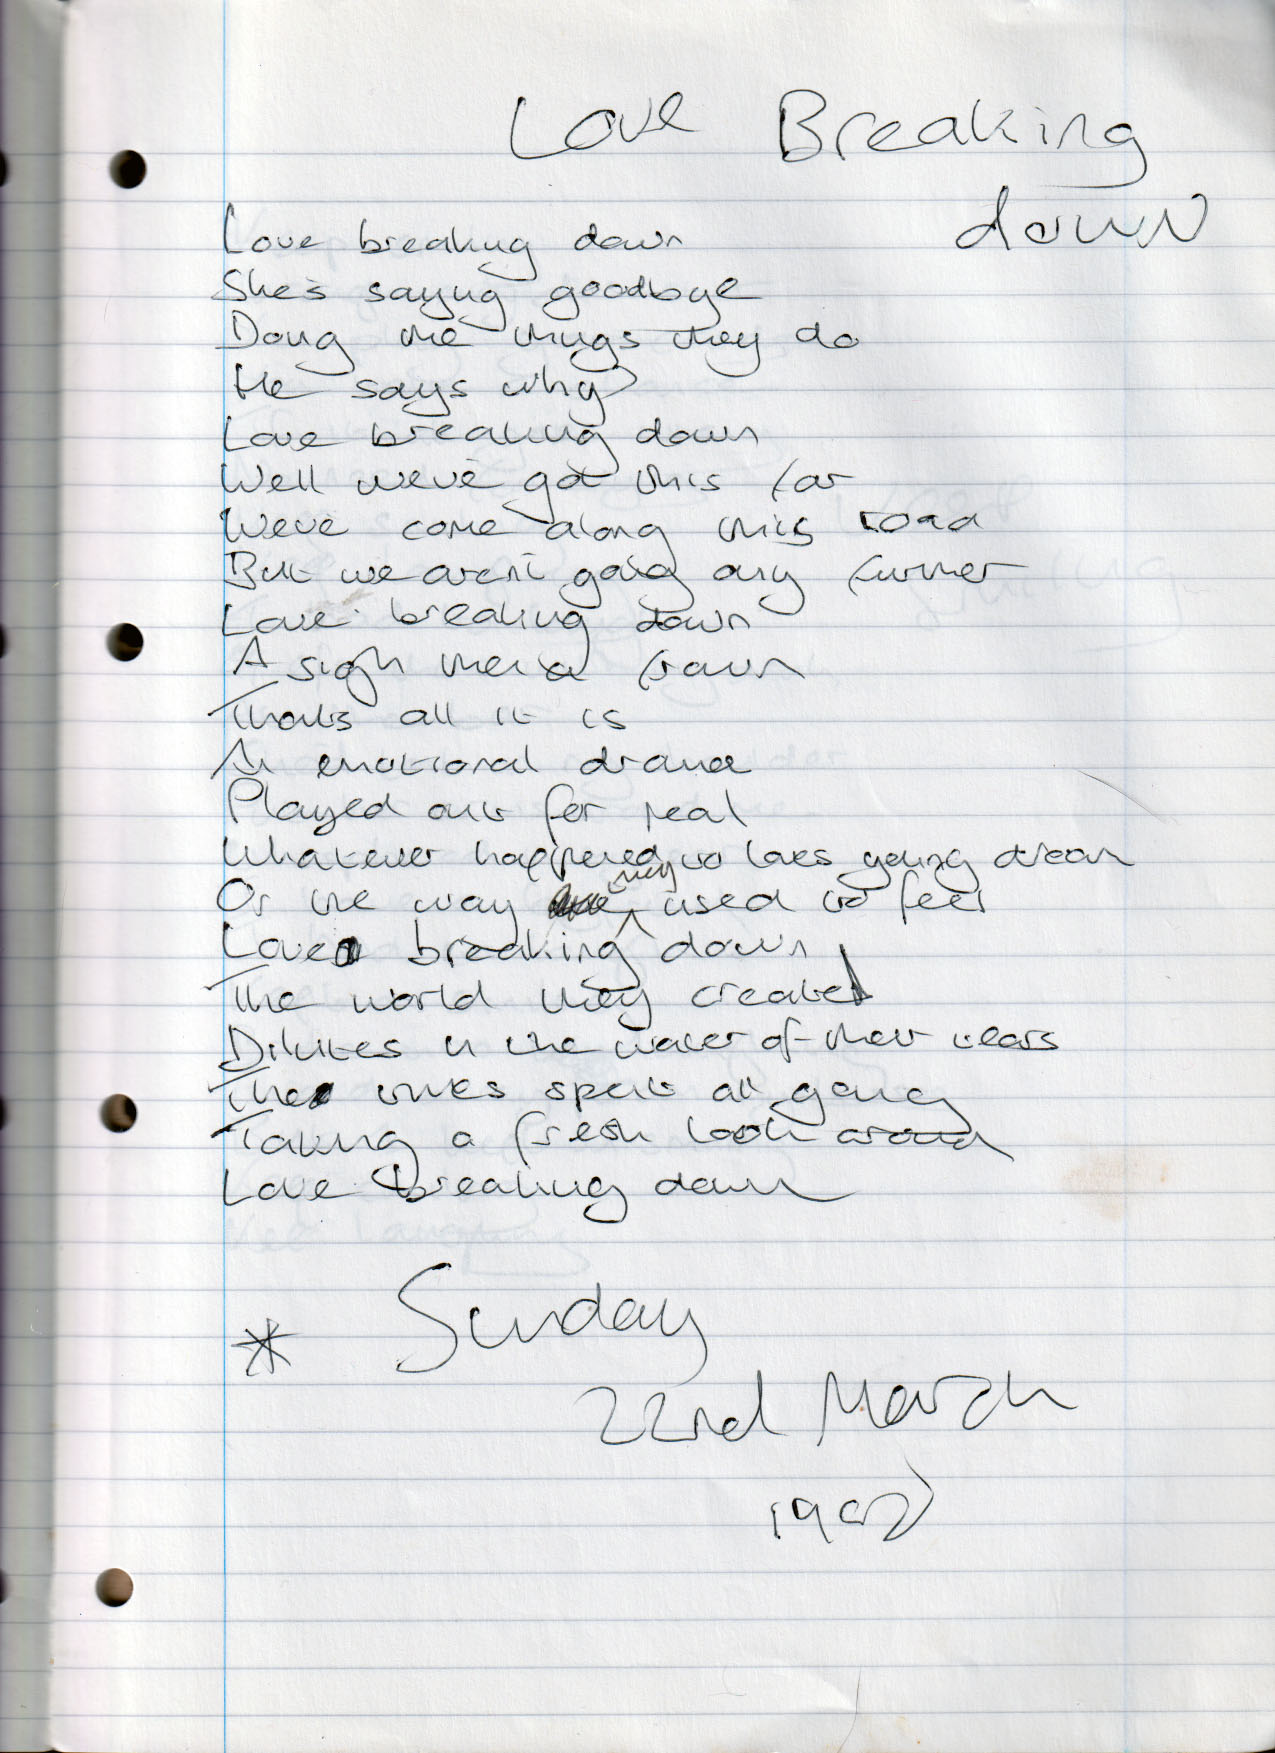 Love Breaking
down
Love breaking down
She's saying goodbye
Doing the things they do
He says why?
Love breaking down
Well we've got this far
We've come along this road
But we aren't going any further
Love breaking down
A sigh then a frown
Thats all it is
An emotional drama
Played out for real
Whatever happened to loves young dream
Or the way they used to feel
Love breaking down
The world they created
Dilutes in the water of their tears
The times spent all going
Taking a fresh look around
Love breaking down
* Sunday
22nd March